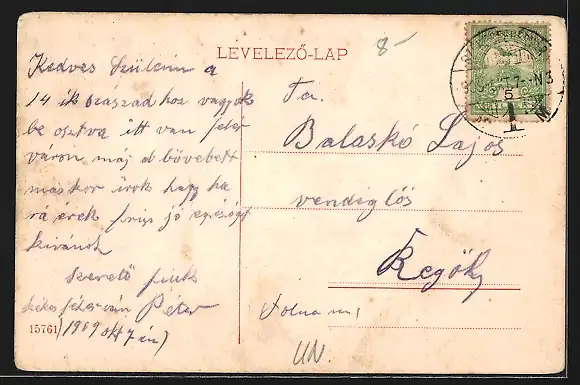 LEVELEZŐ-LAP
8-
Kedves Szüleim a
14 ik századhoz vagyok
be osztva itt van fehér
váron, máj d bővebett
máskor irok hagy ha
rá érek friss jó egésség
kivánok
Szerető fiuk
székes fehérván Péter
(1909 okt 7 én)
15761
Ta.
Balaskó Lajos
vendéglős
Regöly
Tolna m,
UN.